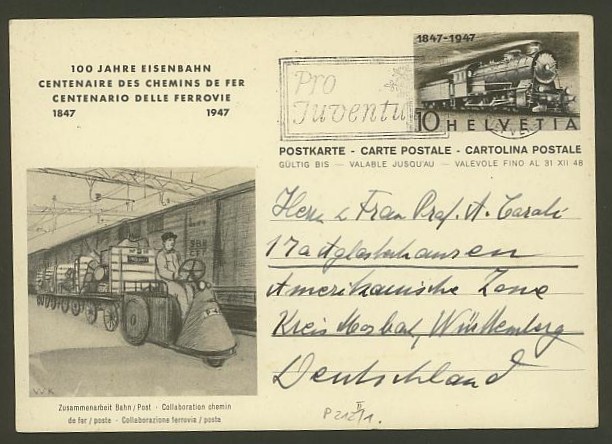 100 JAHRE EISENBAHN
CENTENAIRE DES CHEMINS DE FER
CENTENARIO DELLE FERROVIE
1847 1947
Pro
Juventu
1847-1947
10 HELVETIA
POSTKARTE - CARTE POSTALE - CARTOLINA POSTALE
GÜLTIG BIS — VALABLE JUSQU'AU — VALEVOLE FINO AL 31 XII 48
Herrn & Frau Prof. A.
Amerikanische Zone
Kreis Mosbach, Württemberg
Deutschland
Zusammenarbeit Bahn / Post · Collaboration chemin
de fer / poste - Collaborazione ferrovia / posta
P 212 II/1.